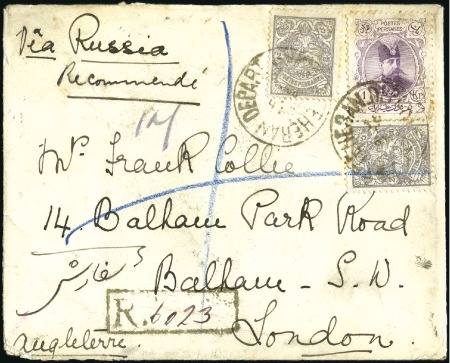 Via Russia
Recommendé
POSTES PERSANES
TEHERAN DEPART
TEHERAN DEPART
Mr. Frank Collie
14. Balham Park Road
سفارشی
Balham - S. W.
R. 6023
London.
Angleterre.